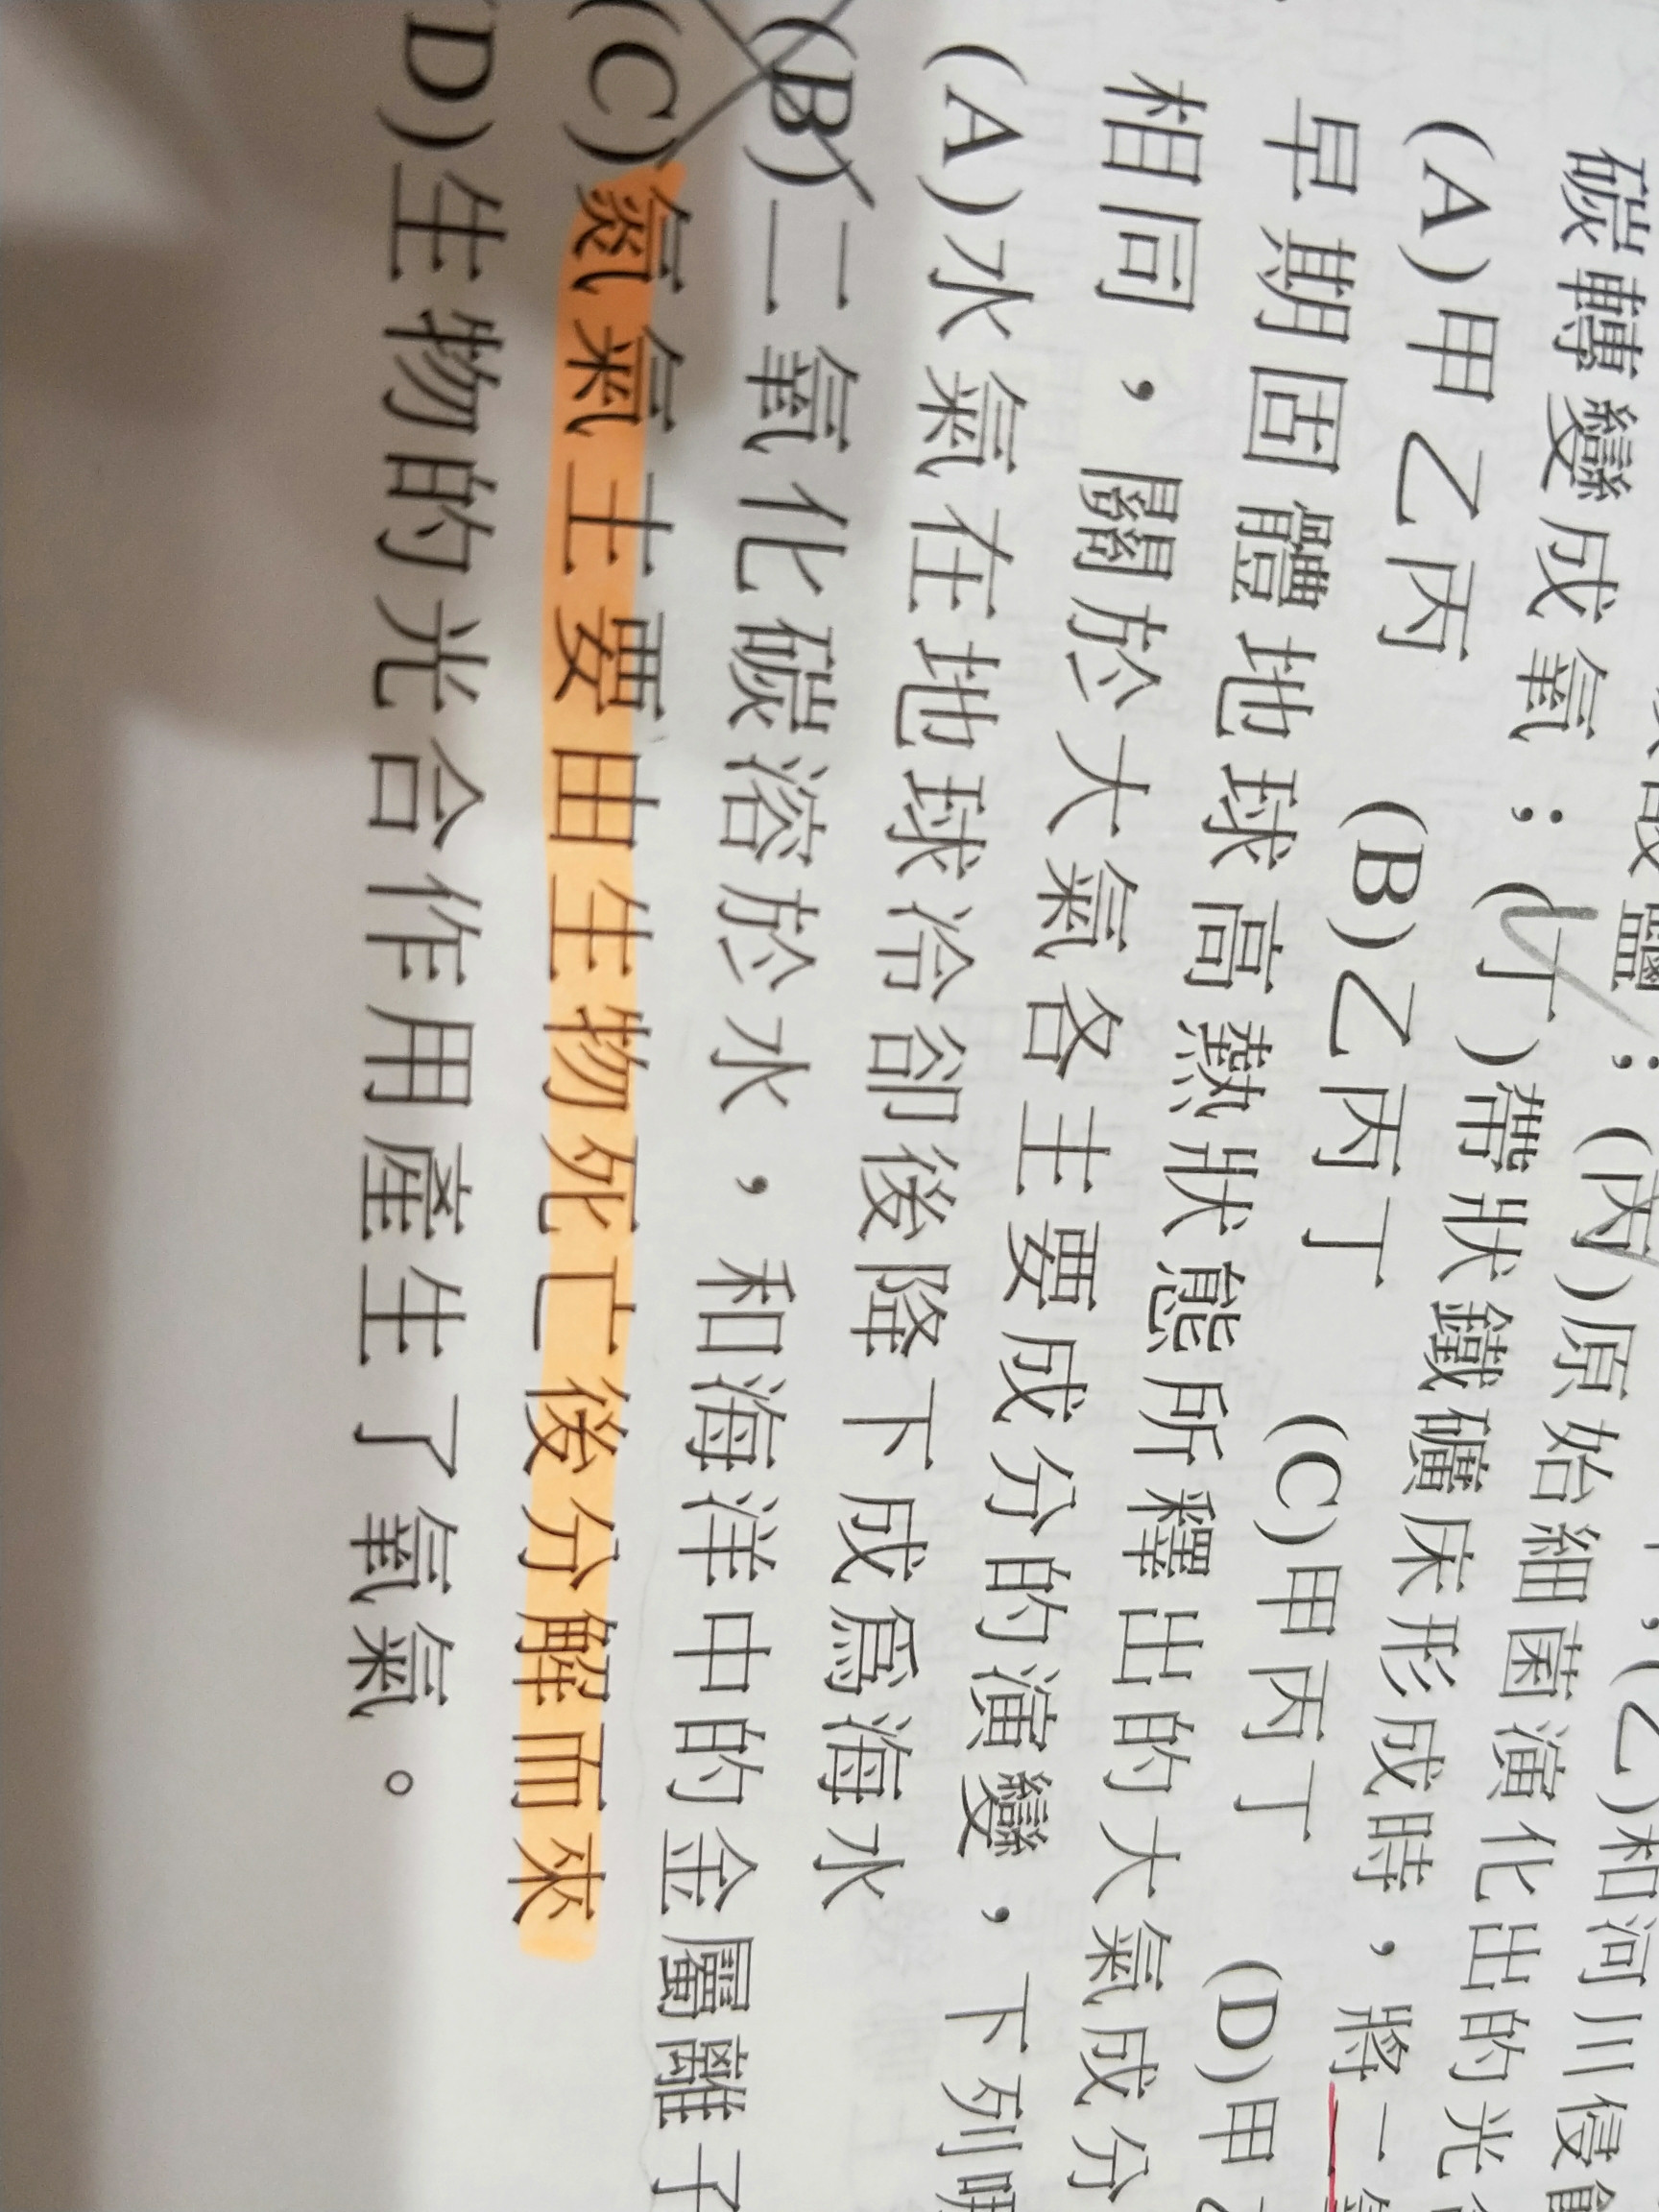 (乙)和河川侵蝕
鹽；(丙)原始細菌演化出的光
碳轉變成氧；(丁)帶狀鐵礦床形成時，將二
(A)甲乙丙 (B)乙丙丁 (C)甲丙丁 (D)甲
早期固體地球高熱狀態所釋出的大氣成分
相同，關於大氣各主要成分的演變，下列哪
(A)水氣在地球冷卻後降下成為海水
(B)二氧化碳溶於水，和海洋中的金屬離子
(C)氮氣主要由生物死亡後分解而來
(D)生物的光合作用產生了氧氣。